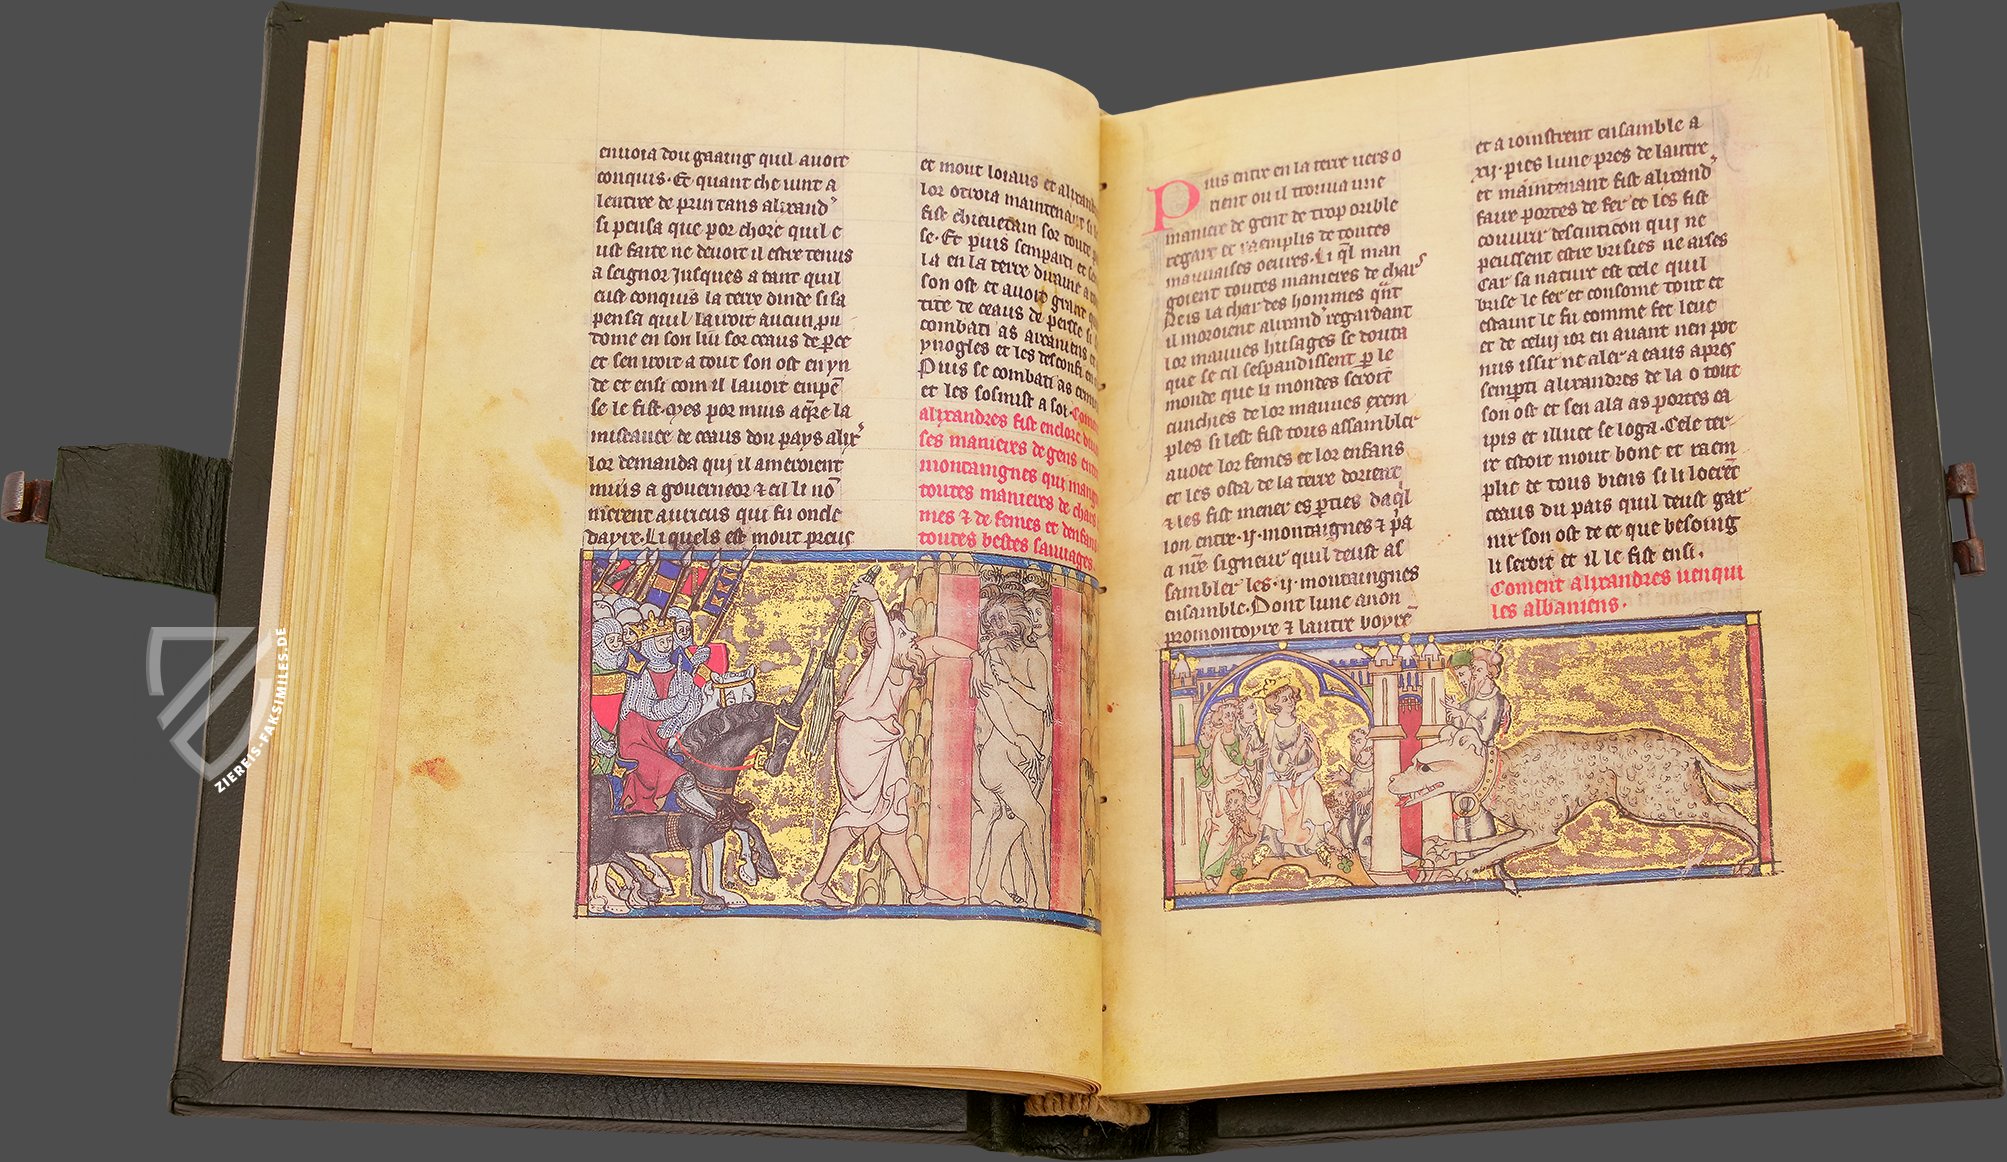 enuoia dou gaaing quil auoit
conquis. Et quant che uint a
lentree de prin tans alixand'
si pensa que por chore quil e
ust faite ne deuoit il estre tenus
a seignor Jusques a tant quil
eust conquis la terre dinde si sa
pensa quil lairoit aucun pu
dome en son liu sor ceaus de pce
et sen iroit a tout son ost en yn
de et ensi com il lauoit enpē
se le fist. Mes por mius aqre la
mistance de ceaus dou pays alix'
lor demanda qui il ameroient
mius a gouerneor ⁊ cil li nō
merent auricus qui fu oncle
dayre. Li quels est mout preus
et mout loiaus et alixand
lor otroia maintenant si le
fist chieuetain sor toute p
se. Et puis semparti et
la en la terre
son ost et auoit grant
tite de ceaus de perse si
combati as
ynogles et les desconfi en
Puis se combati as
et les sosmist a soi. Coment
alixandres fist enclore
ses manieres de gens entre
montaingnes qui mang
toutes manieres de chars
mes ⁊ de femes et denfans
toutes bestes sauuages.
Puis entre en la terre uers o
rient ou il trouua une
maniere de gent de trop orible
regart et raemplis de toutes
mauuaises oeures. Li ql man
goient toutes manieres de chars
Neis la char des hommes qnt
il moroient alixand' regardant
lor mauues husages se douta
que se cil sespandissent p le
monde que li mondes seroit
cunchies de lor mauues exem
ples si lest fist tous assambler
auoec lor femes et lor enfans
et les osta de la terre dorient
⁊ les fist mener es pties daql
lon entre .ij. montaignes ⁊ pa
a nre signeur quil deust as
sambler les .ij. montaingnes
ensamble. Dont lune a non
promontoyre ⁊ lautre boyre
et a ioinstrent ensamble a
xij. pies lune pres de lautre
et maintenant fist alixand'
faire portes de fer et les fist
couurir descinticon qui ne
peussent estre brisies ne arses
Car sa nature est tele quil
brise le fer et consome tout et
estaint le fu comme fet leue
et de celui ior en auant nen pot
nus issir ne aler a eaus apres
sempti alixandres de la o tout
son ost et sen ala as portes ca
ipis et illuec se loga. Cele ter
re estoit mout bone et raem
plie de tous biens si li loerēt
ceaus du pais quil deust gar
nir son ost de ce que besoing
li seroit et il le fist ensi.
Coment alixandres uenqui
les albaniens.
ZIEREIS-FAKSIMILES.DE